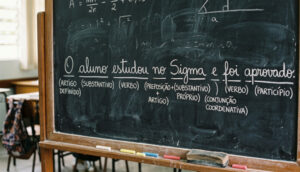 O aluno estudou no Sigma e foi aprovado.
(ARTIGO DEFINIDO) (SUBSTANTIVO) (VERBO) (PREPOSIÇÃO + ARTIGO) (SUBSTANTIVO PRÓPRIO) (CONJUNÇÃO COORDENATIVA) (VERBO) (PARTICÍPIO)